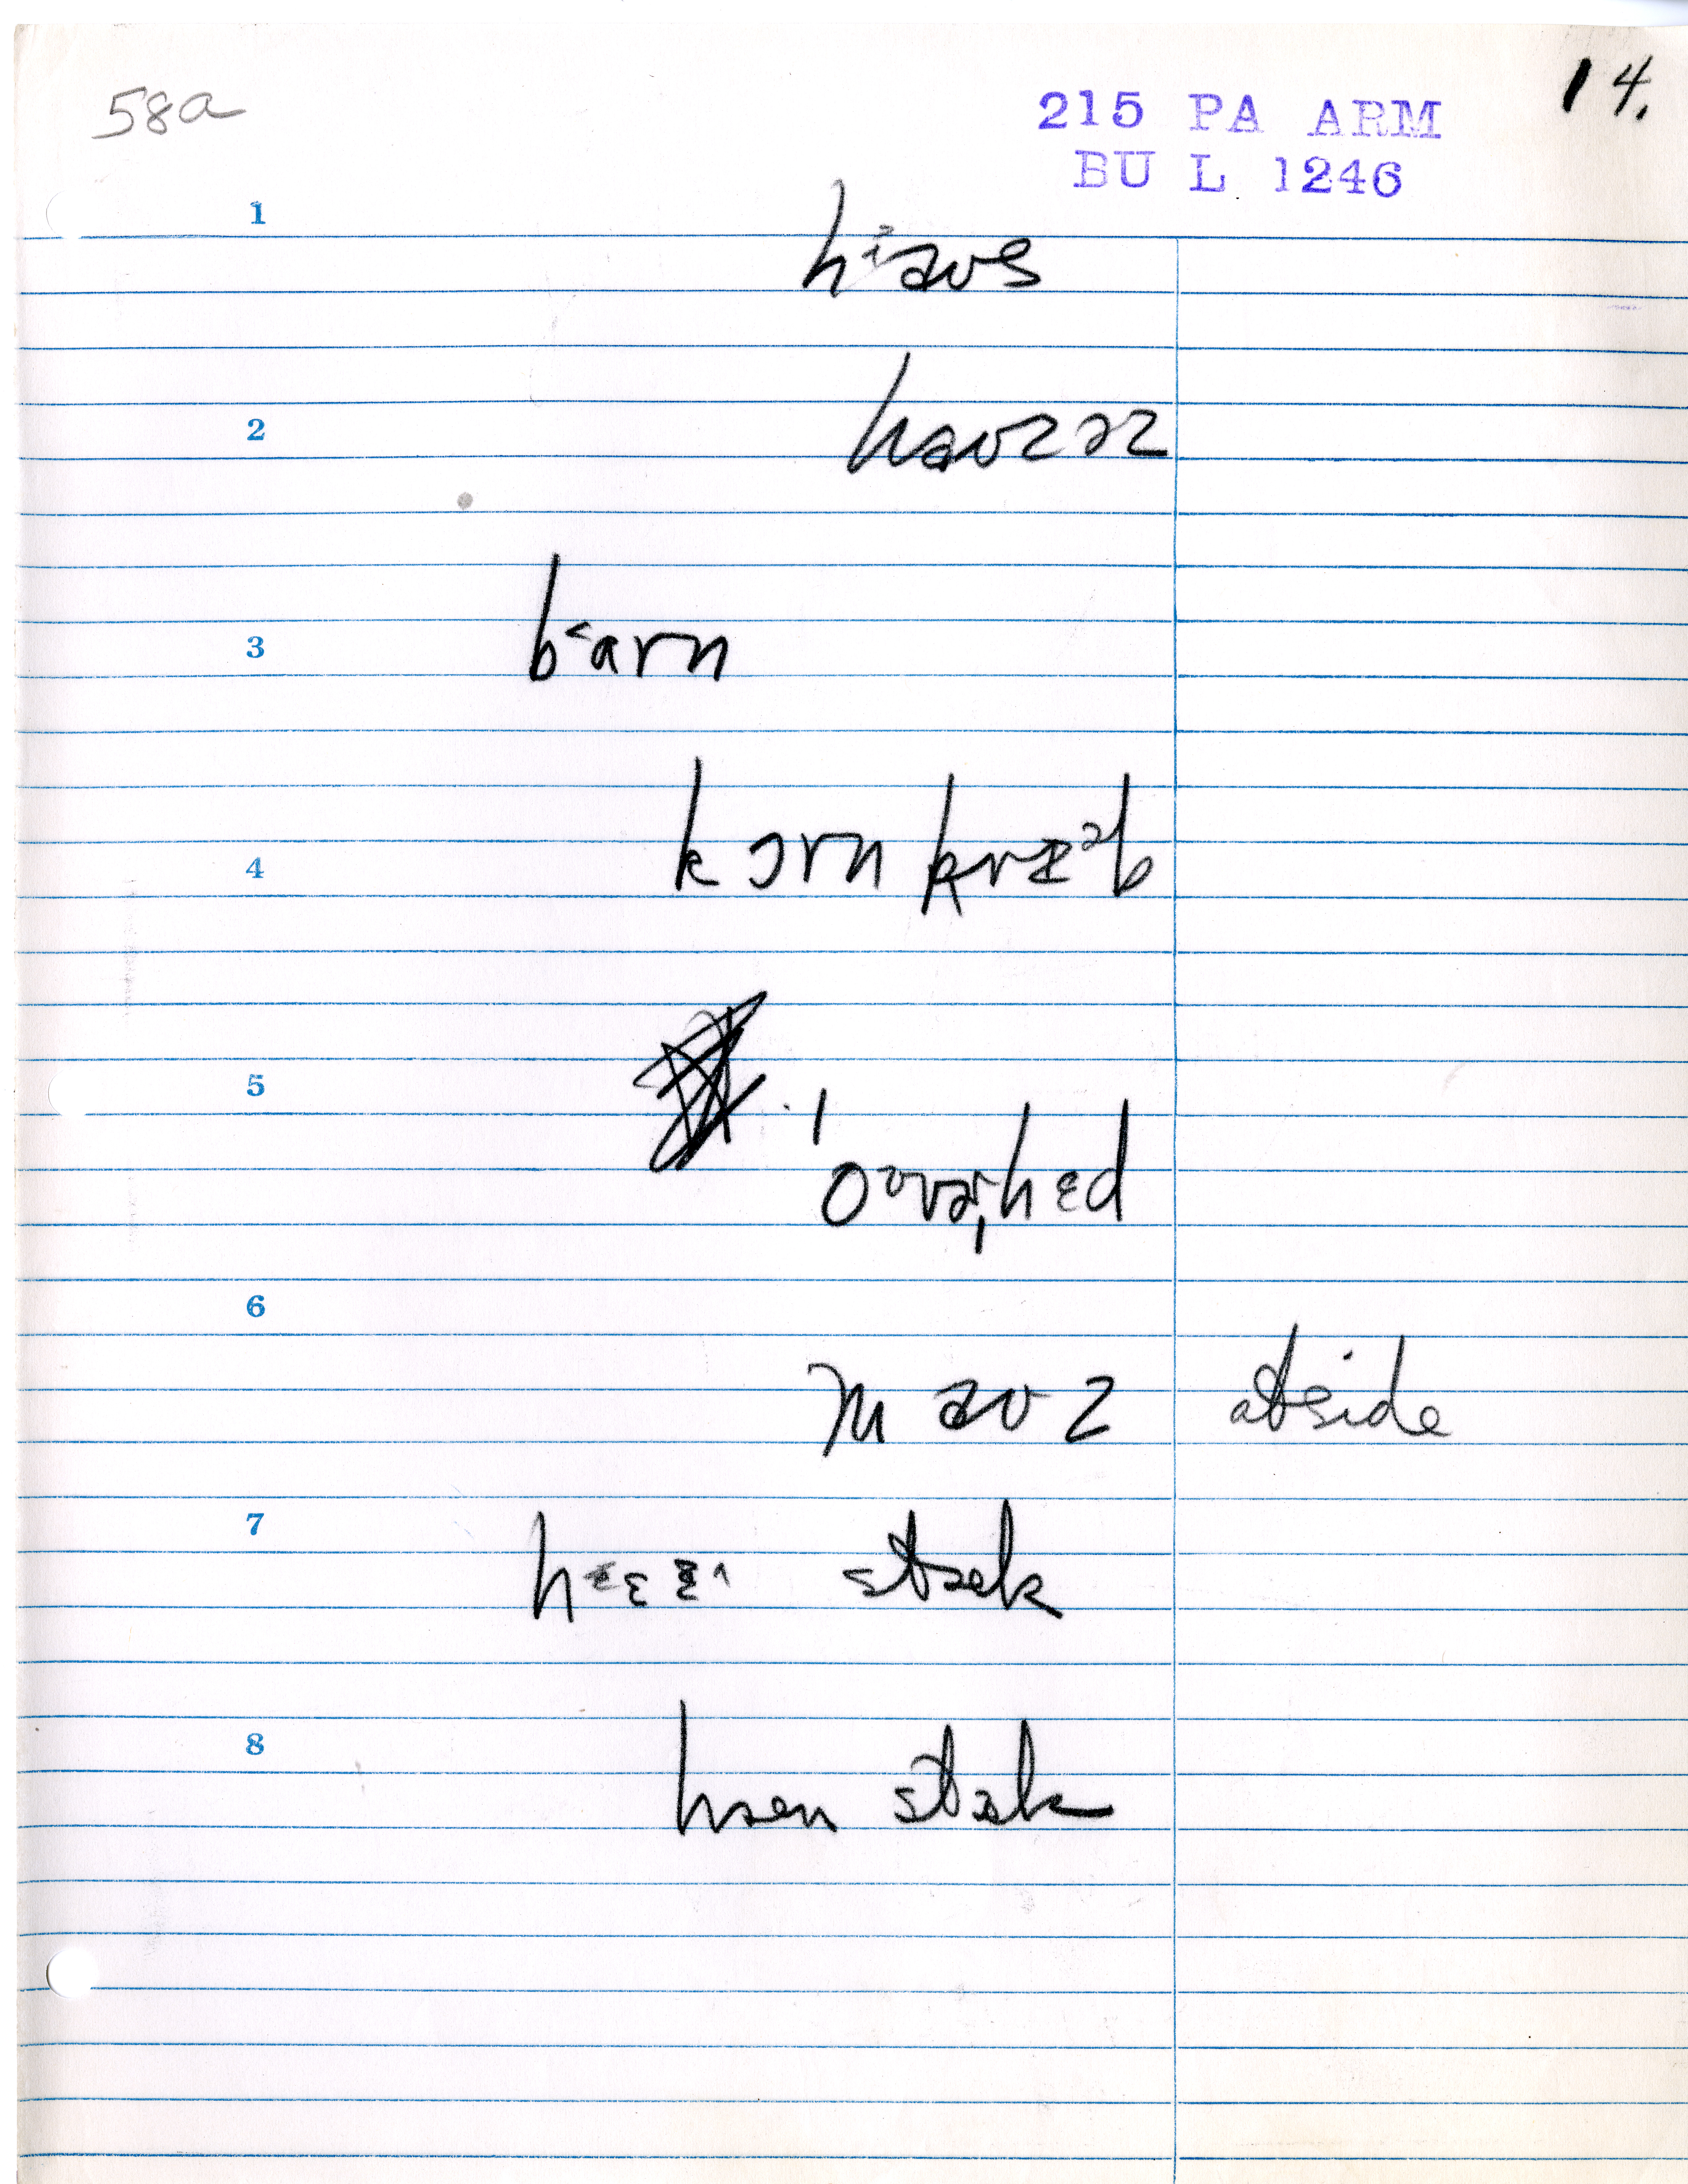 58a
215 PA ARM
14.
BU L 1246
1
hᶤaʊs
2
haʊzəz
3
b˂arn
4
kɔrn krɪᵊb
5
ˈoᶷvɚˌhɛd
6
maʊz atside
7
stæk
8
hæn stæk